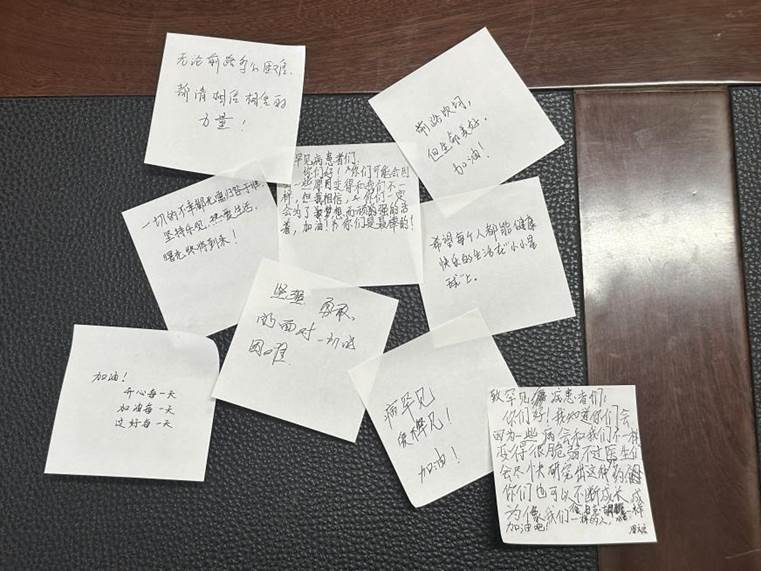 无论前路多么困难,
都请相信相生的
力量!
前路坎坷,
但生命美好.
加油!
罕见病患者们:
你们好!你们可能会因
一些原因变得和我们不一
样,但我相信,你们一定
会为了梦想而顽强的活
着,加油!你们是最棒的!
一切的不幸都无需归咎于谁
坚持乐观,热爱生活,
曙光终将到来!
希望每个人都能健康
快乐的生活在“小小星
球”上。
坚强 勇敢
的面对一切
困难
加油!
开心每一天
加油每一天
过好每一天
病罕见
爱罕见!
加油!
致罕见病患者们:
你们好!我知道你们会
因为一些病会和我们不一样
变得很脆弱不过医生们
会尽快研究出这种药
你们也可以不断成长成
为像我们一样的人,
加油吧!